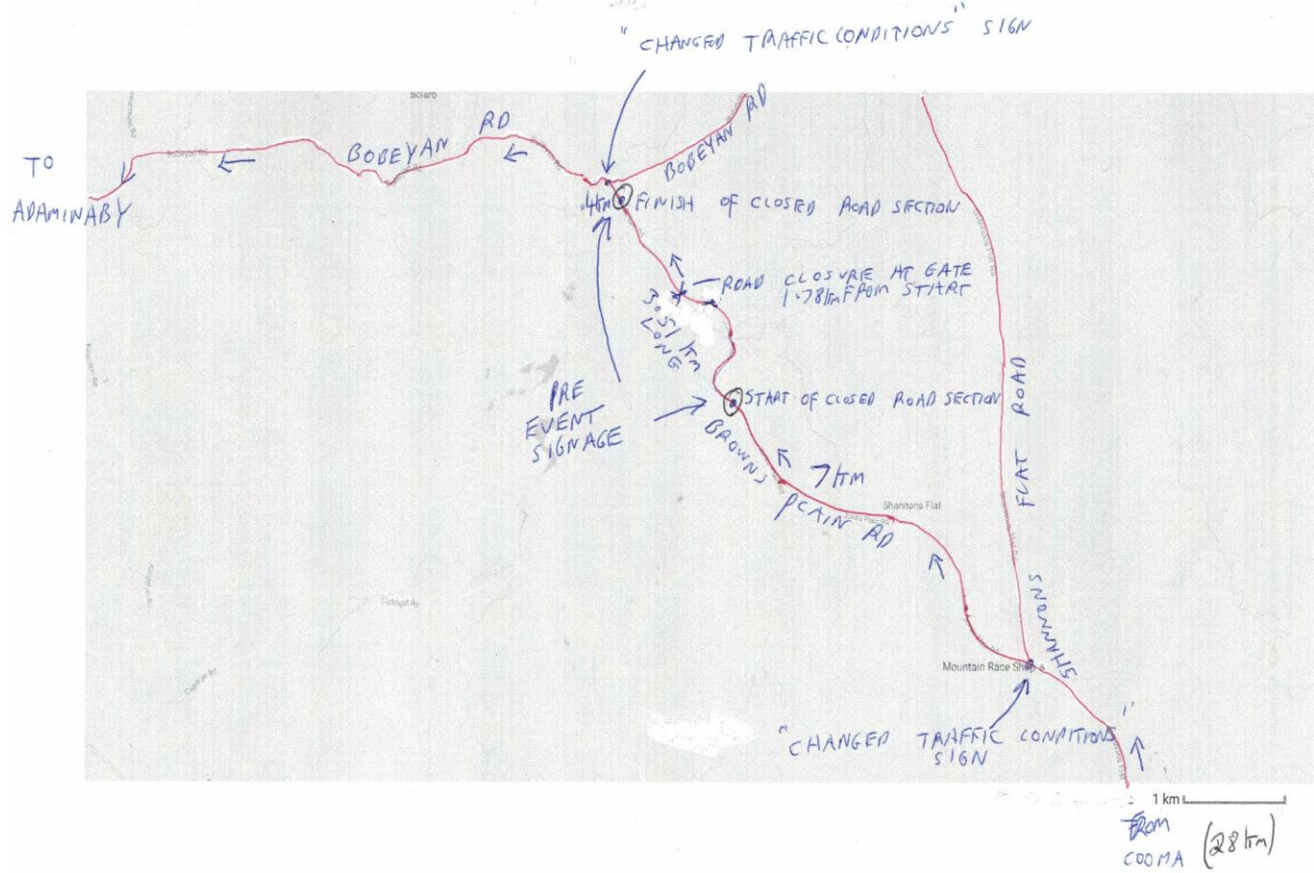 "CHANGED TRAFFIC CONDITIONS" SIGN
Bolaro
TO
ADAMINABY
BOBEYAN RD
BOBEYAN RD
.4km
FINISH OF CLOSED ROAD SECTION
ROAD CLOSURE AT GATE
1.78km FROM START
3.51 km
LONG
PRE
EVENT
SIGNAGE
START OF CLOSED ROAD SECTION
BROWNS PLAIN RD
7km
Shannons Flat
SHANNONS FLAT ROAD
Mountain Race Shop
"CHANGED TRAFFIC CONDITIONS"
SIGN
1 km
FROM
COOMA
(28km)